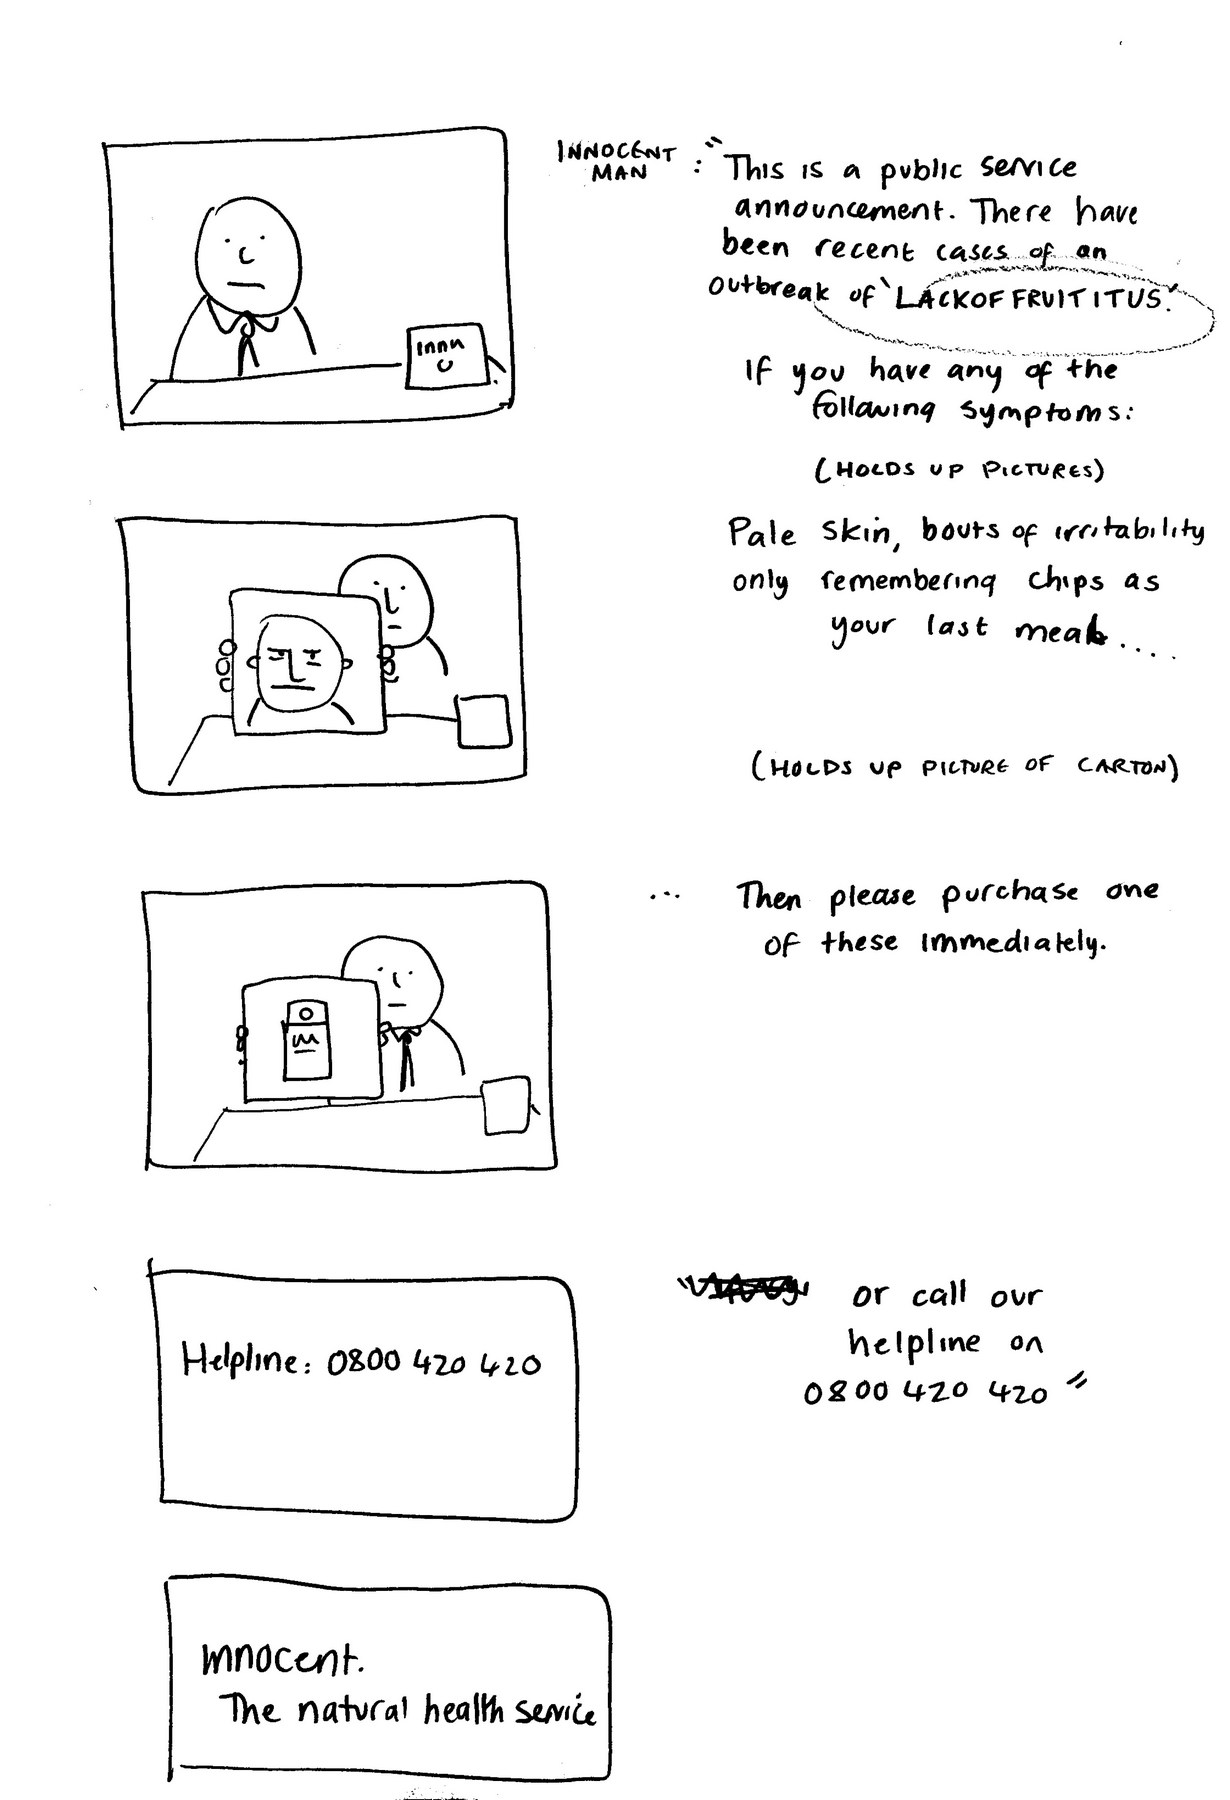 INNOCENT
MAN : "This is a public service
announcement. There have
been recent cases of an
outbreak of 'LACKOFFRUITITUS.'
If you have any of the
following symptoms:
(HOLDS UP PICTURES)
innn
Pale skin, bouts of irritability
only remembering chips as
your last meal....
(HOLDS UP PICTURE OF CARTON)
... Then please purchase one
of these immediately.
Helpline: 0800 420 420
or call our
helpline on
0800 420 420"
innocent.
The natural health service